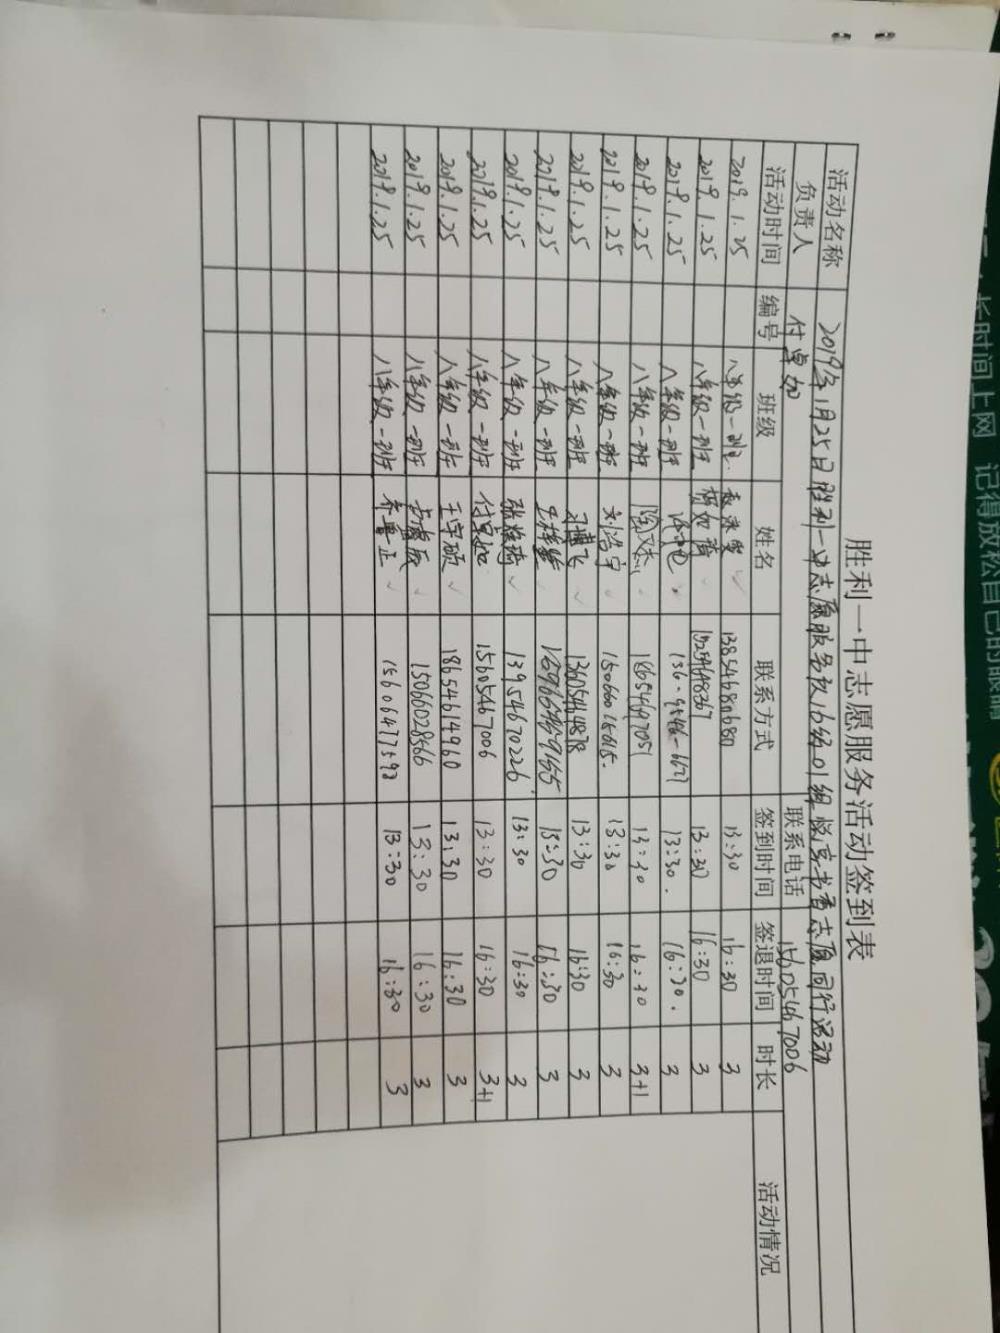 胜利一中志愿服务活动签到表
活动名称 2019年1月25日胜利一中志愿服务队16级01组悦享书香志愿同行活动
负责人 付卓如 联系电话 15605467006
活动时间 编号 班级 姓名 联系方式 签到时间 签退时间 时长 活动情况
2019.1.25 八年级一班 13854680680 13:30 16:30 3
2019.1.25 八年级一班 杨如茜 15254648367 13:30 16:30 3
2019.1.25 八年级一班 136-9546-6627 13:30. 16:30. 3
2019.1.25 八年级一班 18654697051 13:30 16:30 3+1
2019.1.25 八年级一班 刘浩宇 15066015615. 13:30 16:30 3
2019.1.25 八年级一班 13605464878 13:30 16:30 3
2019.1.25 八年级一班 13:30 16:30 3
2019.1.25 八年级一班 13954670226 13:30 16:30 3
2019.1.25 八年级一班 付卓如 15605467006 13:30 16:30 3+1
2019.1.25 八年级一班 王宇硕 18654614960 13:30 16:30 3
2019.1.25 八年级一班 15066028566 13:30 16:30 3
2019.1.25 八年级一班 齐鲁正 13:30 16:30 3
长时间上网 记得放松自己的眼睛